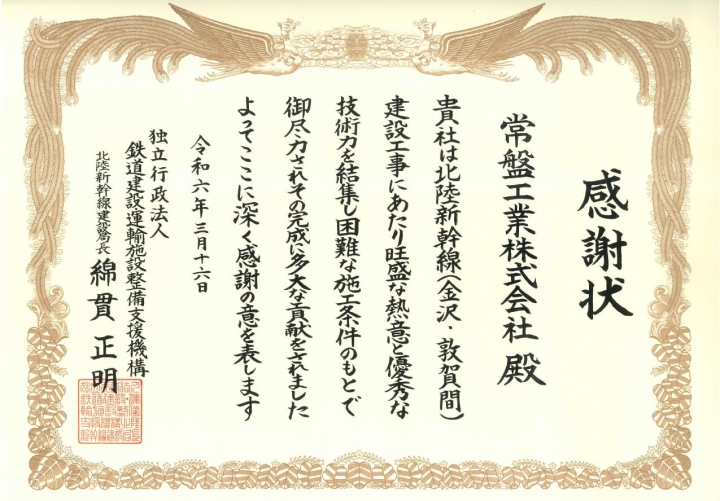 感謝状
常盤工業株式会社 殿
貴社は北陸新幹線(金沢・敦賀間)
建設工事にあたり旺盛な熱意と優秀な
技術力を結集し困難な施工条件のもとで
御尽力されその完成に多大な貢献をされました
よってここに深く感謝の意を表します
令和六年三月十六日
独立行政法人
鉄道建設運輸施設整備支援機構
北陸新幹線建設局長 綿貫正明